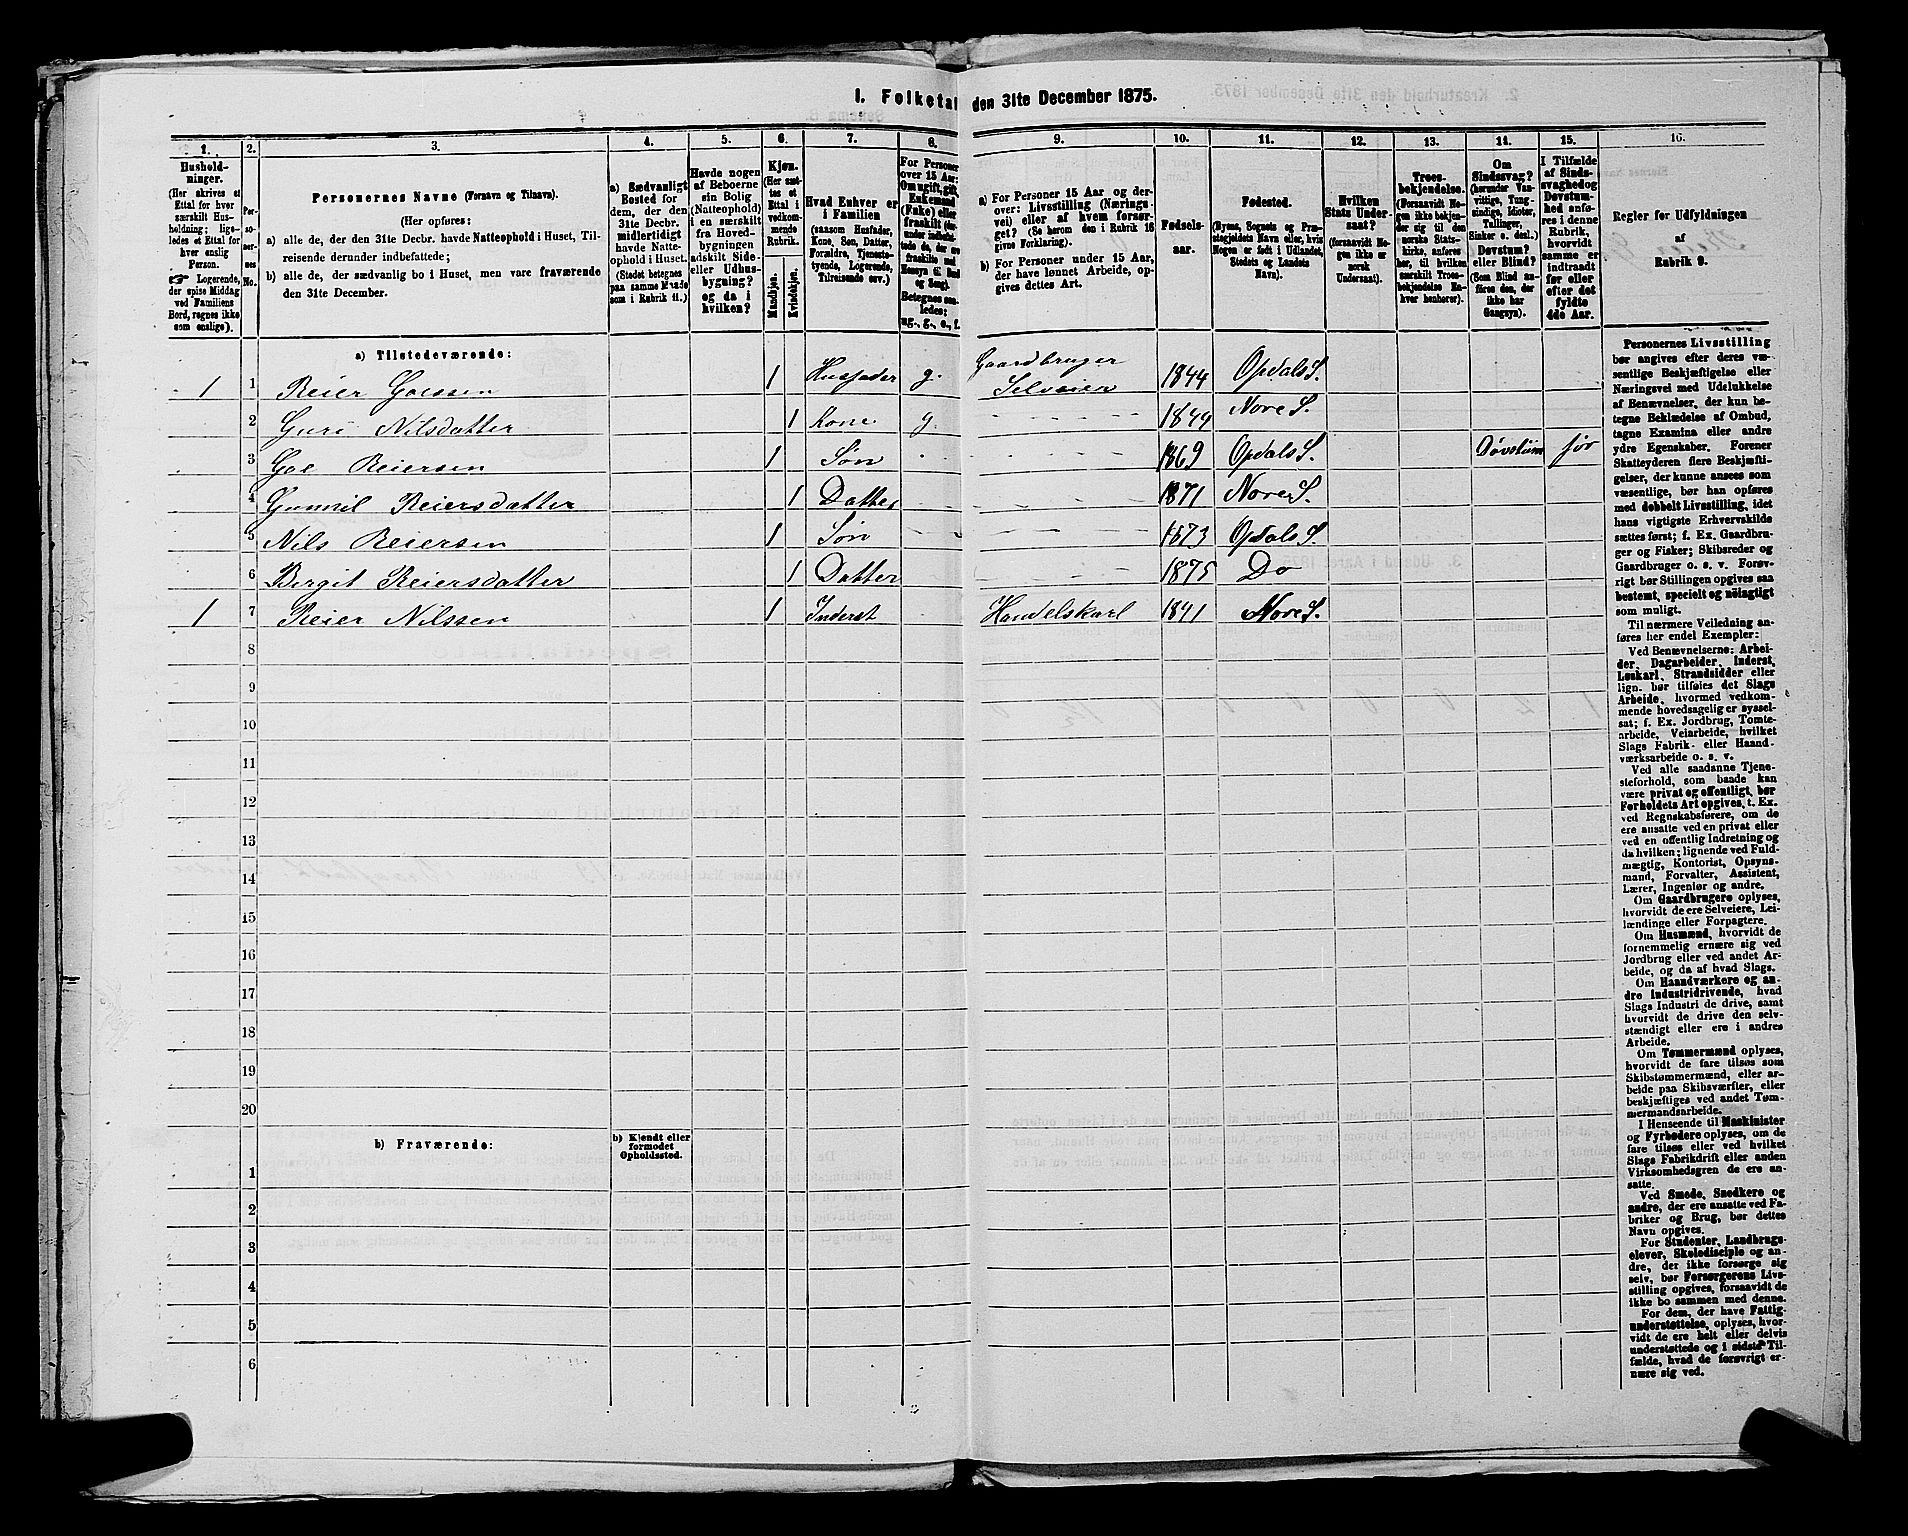 I. Folketal den 31te December 1875.
1. 2. 3. 4. 5. 6. 7. 8. 9. 10. 11. 12. 13. 14. 15. 16.
Hushold-
ninger.
(Her skrives et
Ettal for hver
særskilt Hus-
holdning; lige-
ledes et Ettal for
hver enslig
Person.
☞ Logerende,
der spise Middag
ved Familiens
Bord, regnes ikke
som enslige).
Per-
so-
ner-
nes
No.
Personernes Navne (Fornavn og Tilnavn).
(Her opføres:
a) alle de, der den 31te Decbr. havde Natteophold i Huset, Til-
reisende derunder indbefattede;
b) alle de, der sædvanlig bo i Huset, men vare fraværende
den 31te December.
a) Sædvanligt
Bosted for
dem, der den
31te Decbr.
midlertidigt
havde Natte-
ophold i Huset.
(Stedet betegnes
paa samme Maade
som i Rubrik 11.)
Havde nogen
af Beboerne
sin Bolig
(Natteophold)
i en særskilt
fra Hoved-
bygningen
adskilt Side-
eller Udhus-
bygning?
og da i
hvilken?
Kjøn.
(Her sæt-
tes et
Ettal i
vedkom-
mende
Rubrik.
Mandkjøn.
Kvindekjøn.
Hvad Enhver er
i Familien
(saasom Husfader,
Kone, Søn, Datter,
Forældre, Tjeneste-
tyende, Logerende,
Tilreisende osv.)
For Personer
over 15 Aar:
Om ugift, gift,
Enkemand
(Enke) eller
fraskilt (der-
under indbefat-
tede de, der ere
fraskilte med
Hensyn til Bord
og Seng).
Betegnes saa-
ledes:
ug., g., e., f.
a) For Personer 15 Aar og der-
over: Livsstilling (Nærings-
vei) eller af hvem forsør-
get? (Se herom den i Rubrik 16
givne Forklaring).
b) For Personer under 15 Aar,
der have lønnet Arbeide, op-
gives dettes Art.
Fødsels-
aar.
Fødested.
(Byens, Sognets og Præ-
stegjeldets Navn eller, hvis
Nogen er født i Udlandet,
Stedets og Landets
Navn).
Hvilken
Stats Under-
saat?
(forsaavidt No-
gen ikke er
norsk
Undersaat).
Troes-
bekjendelse.
(Forsaavidt No-
gen ikke bekjen-
der sig til den
norske Stats-
kirke, anføres
her, til hvilken
særskilt Troes-
bekjendelse En-
hver henhører).
Om
Sindssvag?
(herunder Van-
vittige, Tung-
sindige, Idioter,
Tullinger,
Sinker o. desl.)
Døvstum?
eller Blind?
(Som Blind an-
føres den, der
ikke har
Gangsyn).
I Tilfælde
af Sinds-
svaghed og
Døvstum-
hed anfø-
res i denne
Rubrik,
hvorvidt
samme er
indtraadt
før eller
efter det
fyldte
4de Aar.
Regler for Udfyldningen
af
Rubrik 9.
a) Tilstedeværende:
1 1 Reier Goessen 1 Husfader g. Gaardbruger Selveier 1844 Opdals S.
2 Guri Nilsdatter 1 Kone g. 1849 Nore S.
3 Goe Reiersen 1 Søn 1869 Opdals S. Døvstum før
4 Gunnil Reiersdatter 1 Datter 1871 Nore S.
5 Nils Reiersen 1 Søn 1873 Opdals S.
6 Birgit Reiersdatter 1 Datter 1875 Do
1 7 Reier Nilssen 1 Inderst Handelskarl 1841 Nore S.
8
9
10
11
12
13
14
15
16
17
18
19
20
b) Fraværende:
b) Kjendt eller
formodet
Opholdssted.
1
2
3
4
5
6
Personernes Livsstilling
bør angives efter deres væ-
sentlige Beskjæftigelse eller
Næringsvei med Udelukkelse
af Benævnelser, der kun be-
tegne Beklædelse af Ombud,
tagne Examina eller andre
ydre Egenskaber. Forener
Skatteyderen flere Beskjæfti-
gelser, der kunne ansees som
væsentlige, bør han opføres
med dobbelt Livsstilling, idet
hans vigtigste Erhvervskilde
sættes først; f. Ex. Gaardbru-
ger og Fisker; Skibsreder og
Gaardbruger o. s. v. Forøv-
rigt bør Stillingen opgives saa
bestemt, specielt og nøiagtigt
som muligt.
Til nærmere Veiledning an-
føres her endel Exempler:
Ved Benævnelserne: Arbei-
der, Dagarbeider, Inderst,
Løskarl, Strandsidder eller
lign. bør tilføies det Slags
Arbeide, hvormed vedkom-
mende hovedsagelig er syssel-
sat; f. Ex. Jordbrug, Tomte-
arbeide, Veiarbeide, hvilket
Slags Fabrik- eller Haand-
værksarbeide o. s. v.
Ved alle saadanne Tjene-
steforhold, som baade kan
være privat og offentligt, bør
Forholdets Art opgives, t. Ex.
ved Regnskabsførere, om de
ere ansatte ved en privat eller
ved en offentlig Indretning og
da hvilken; lignende ved Fuld-
mægtig, Kontorist, Opsyns-
mand, Forvalter, Assistent,
Lærer, Ingeniør og andre.
Om Gaardbrugere oplyses,
hvorvidt de ere Selveiere, Lei-
lændinge eller Forpagtere.
Om Husmænd, hvorvidt de
fornemmelig ernære sig ved
Jordbrug eller ved andet Ar-
beide, og da af hvad Slags.
Om Haandværkere og an-
dre Industridrivende, hvad
Slags Industri de drive, samt
hvorvidt de drive den selv-
stændigt eller ere i andres
Arbeide.
Om Tømmermænd oplyses,
hvorvidt de fare tilsøs som
Skibstømmermænd, eller ar-
beide paa Skibsværfter, eller
beskjæftiges ved andet Tøm-
mermandsarbeide.
I Henseende til Maskinister
og Fyrbødere oplyses, om de
fare tilsøs eller ved hvilket
Slags Fabrikdrift eller anden
Virksomhedsgren de ere an-
satte.
Ved Smede, Snedkere og
andre, der ere ansatte ved Fa-
briker og Brug, bør dettes
Navn opgives.
For Studenter, Landbrugs-
elever, Skoledisciple og an-
dre, der ikke forsørge sig
selv, bør Forsørgerens Livs-
stilling opgives, forsaavidt de
ikke bo sammen med denne.
For dem, der have Fattig-
understøttelse, oplyses, hvor-
vidt de ere helt eller delvis
understøttede og i sidste Til-
fælde, hvad de forøvrigt er-
nære sig ved.